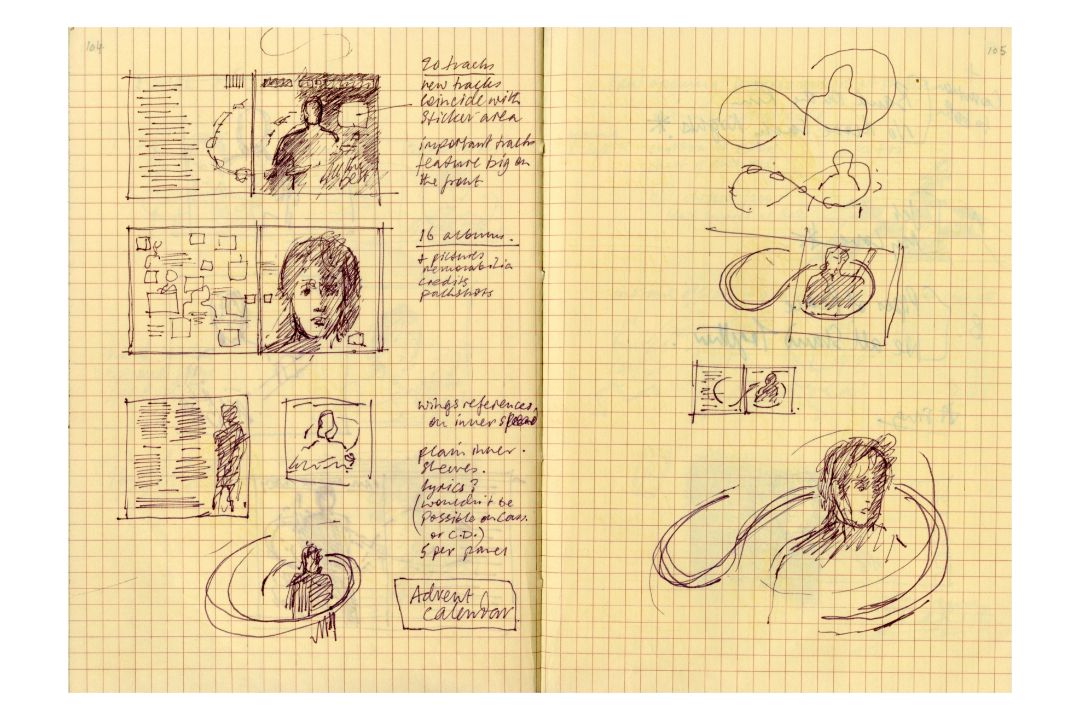 104
20 tracks
new tracks
coincide with
sticker area
important tracks
feature big on
the front
all the
best
16 albums.
+ pictures
memorabilia
credits
packshots
wings references
on inner spread
plain inner.
sleeves.
lyrics?
(wouldn't be
possible on Cass.
or C.D.)
5 per panel
Advent
calendar
105